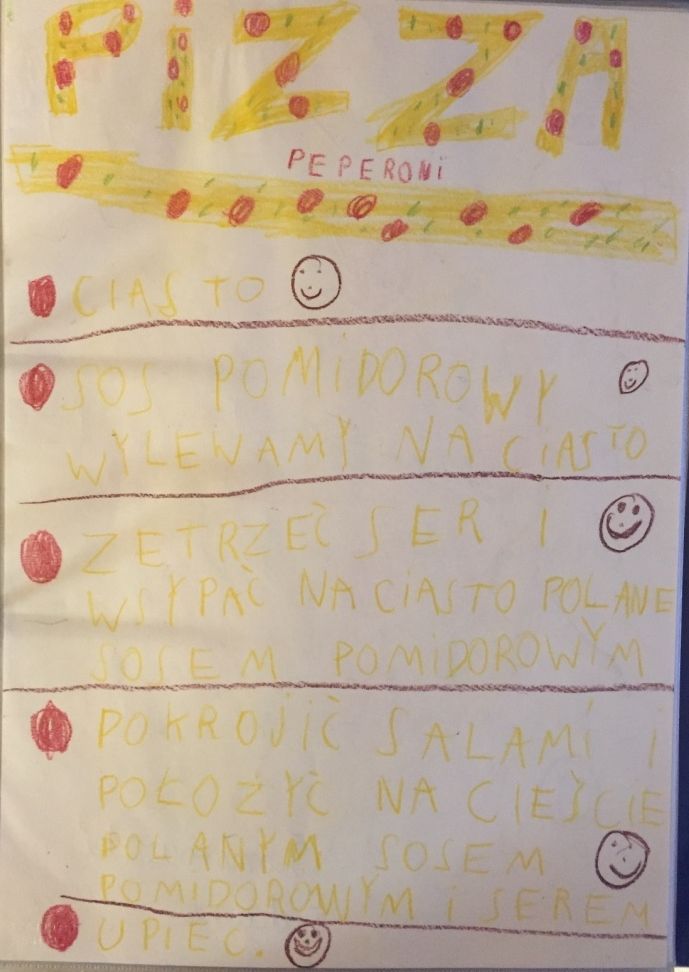 PiZZA
PEPERONi
CIASTO
SOS POMiDOROWY
WYLEWAMY NA CiASTO
ZETRZEĆ SER I
WSYPAĆ NA CIASTO POLANE
SOSEM POMiDOROWYM
POKROJIĆ SALAMi I
POŁOŻYĆ NA CIEŚCIE
POLANYM SOSEM
POMIDOROWYM i SEREM
UPIEC.